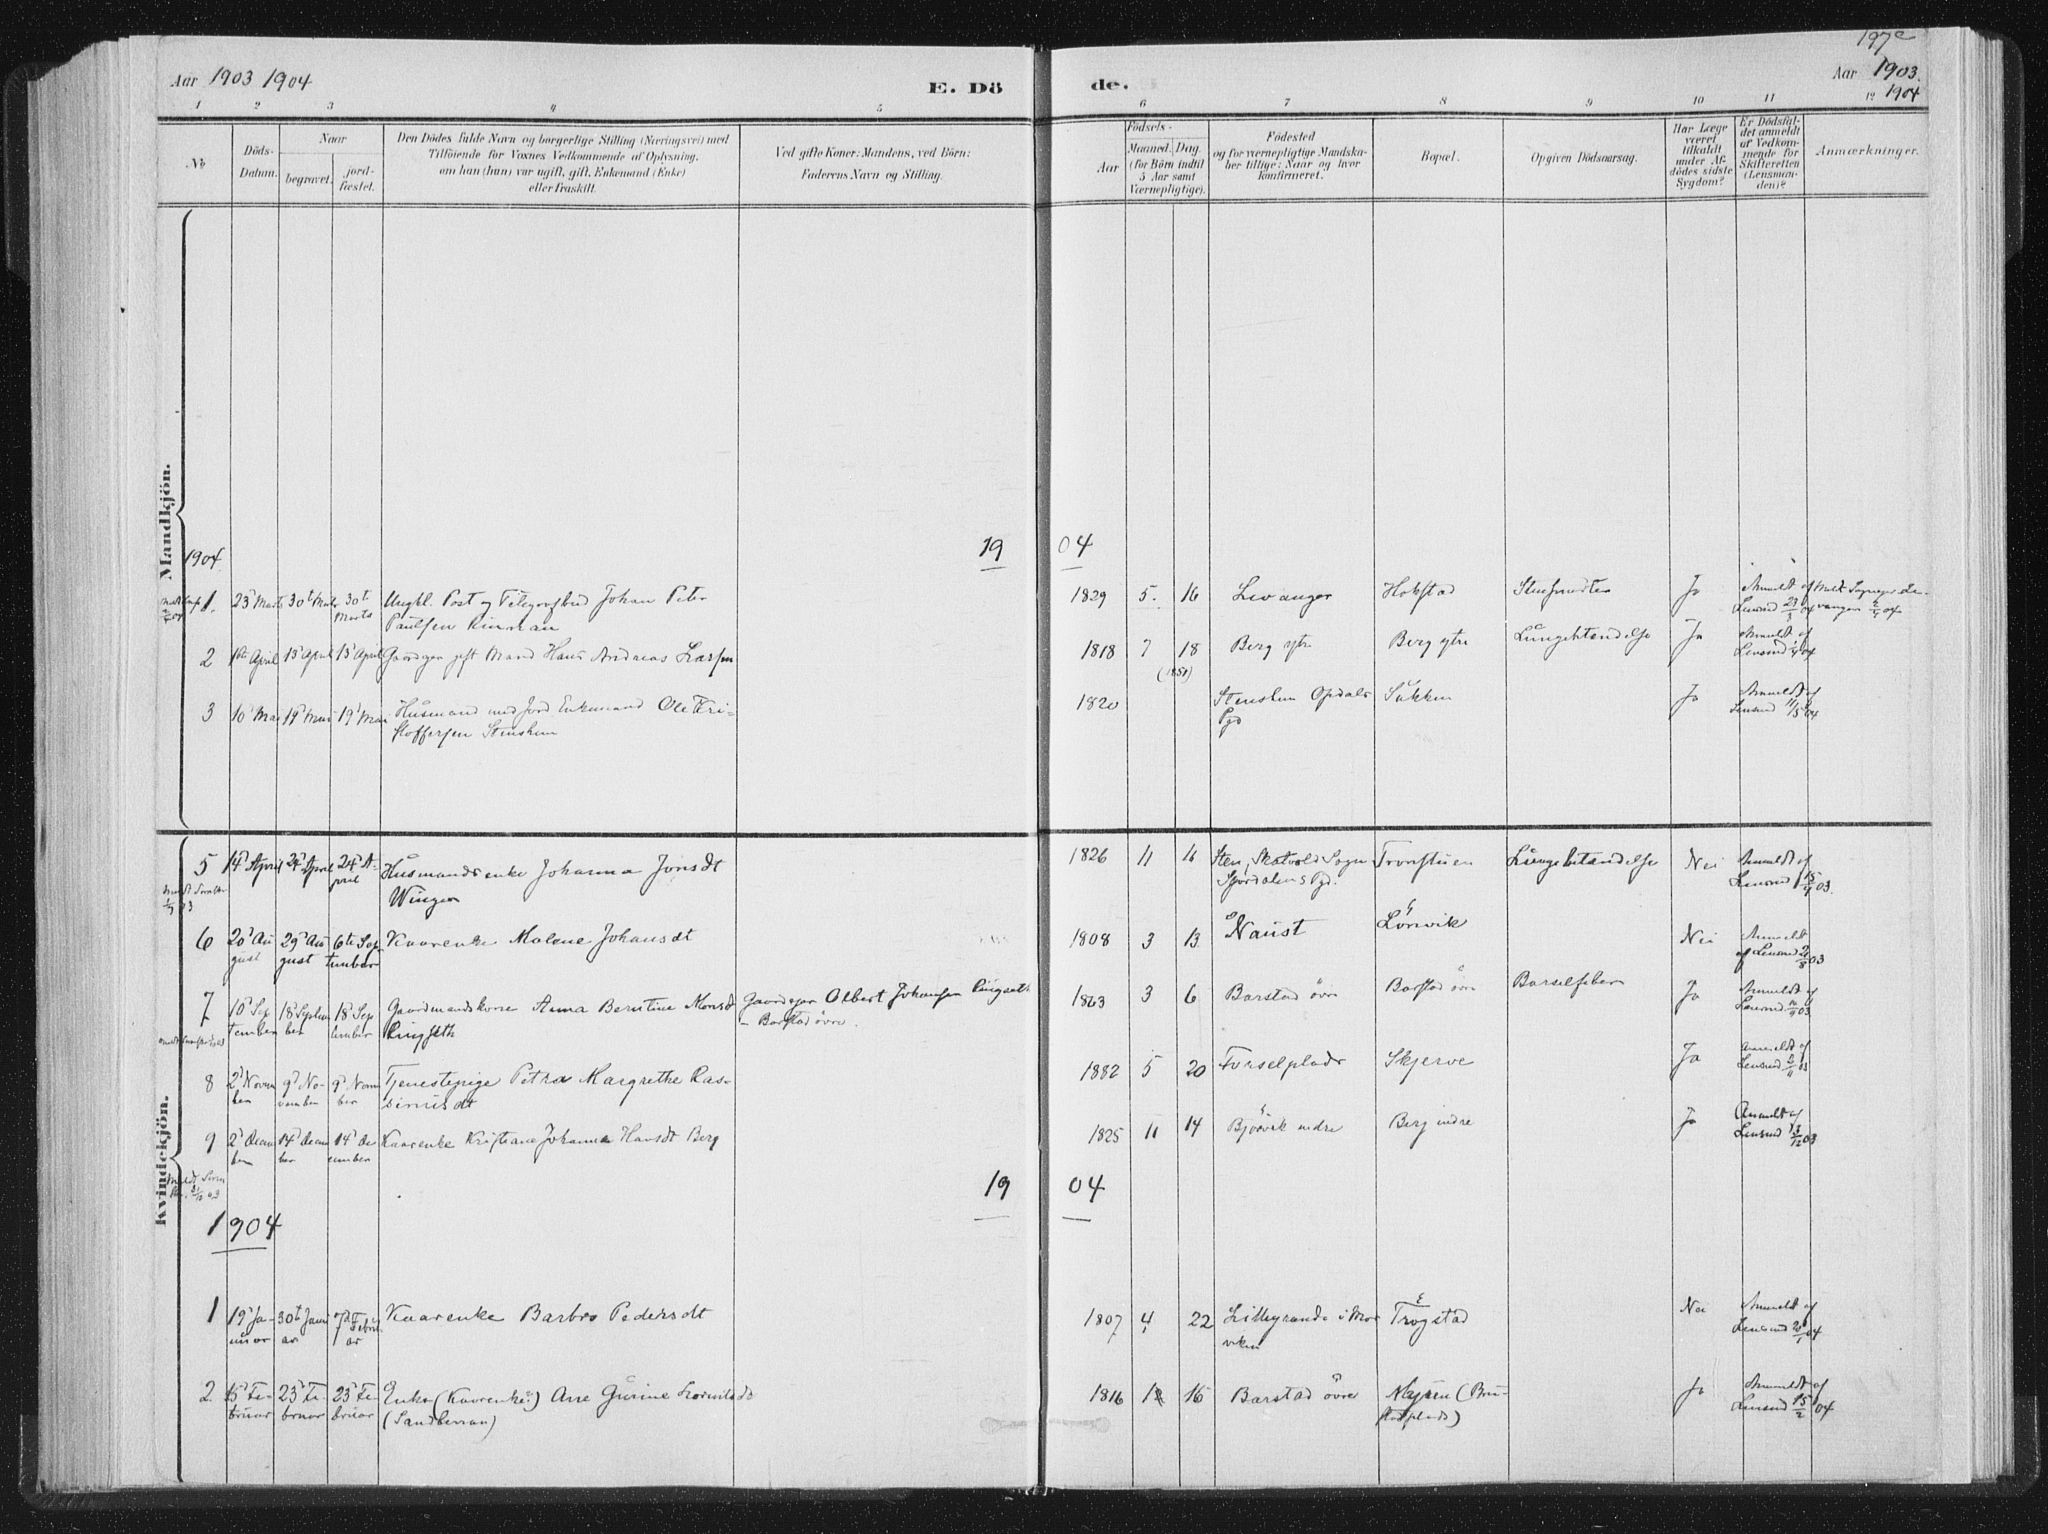 197c
Aar 1903 1904
E. Dö
de.
Aar 1903.
1904
1 2 3 4 5 6 7 8 9 10 11 12
No
Döds-
Datum.
Naar
begravet.
jord-
fæstet.
Den Dödes fulde Navn og borgerlige Stilling (Næringsvei) med
Tilföiende for Voxnes Vedkommende af Oplysning,
om han (hun) var ugift, gift, Enkemand (Enke)
eller fraskilt.
Ved gifte Koner: Mandens, ved Börn:
Faderens Navn og Stilling.
Födsels-
Aar
Maaned.
Dag.
(for Börn indtil
5 Aar samt
Værnepligtige).
Födested
og for værnepligtige Mandska-
ber tillige: Naar og hvor
konfirmeret.
Bopæl.
Opgiven Dödsaarsag.
Har Læge
været
tilkaldt
under Af-
dödes sidste
Sygdom?
Er Dödsfal-
det anmeldt
af Vedkom-
mende for
Skifteretten
(Lensman-
den)?
Anmærkninger.
Mandkjön.
1904
19 04
1. 23 Marts 30t Marts 30t Marts Ungkl. Post og Telegrafbud Johan Peter
Paulsen Kinman
1829 5. 16 Levanger Hokstad Ja Anmeldt af
Lensmd 23/3 04
2 April 15 April 15 April Gaardgr gift Mand Hans Andreas Larsen
1818 7 18 Berg ytre Berg ytre Lungebetændelse Ja Anmeldt af
Lensmd 04
3 10' Mai 19' Mai 19' Mai Husmand med Jord Enkemand Ole Kri-
stoffersen Stenshem
1820 Stenshem Opdals
Pgd
Ja Anmeldt af
Lensmd 11/5 04
Kvindekjön.
5 14' April 24' April 24' A-
pril Husmandsenke Johanna Jonsdt
Winger
1826 11 11 Sten, Skatvold Sogn
Stjørdalens Pgd.
Tronstuen Lungebetændelse Nei Anmeldt af
Lensmd 15/4 03.
6 20' Au
gust 29' Au
gust 6te Sep
tember Kaarenke Malene Johansdt
1808 3 13 Naust Lørvik Nei Anmeldt
af Lensmd 03
7 10' Sep
tember 18' Septem
ber 18' Sep
tember Gaardmandskone Anna Berntine Monsdt
Ringseth
Gaardejer Albert Johansen Ringseth
- Barstad øvre.
1863 3 6 Barstad øvre Barstad øvre Barselfeber Ja Anmeldt af
Lensmd 03
8 2' Novem
ber 9' No-
vember 9' Novem
ber Tjenestepige Petra Margrethe Ras-
simusdt
1882 5 20 Forselplads Skjerve Ja Anmeldt af
Lensmd 03
9 2' Decem
ber 14' Decem
ber 14' De
cember Kaarenke Kristiane Johanna Hansdt Berg
1825 11 14 Bjørvik indre Berg indre Ja Anmeldt af
Lensmd 13/12 03
19 04
1904
1 19' Ja-
nuar 30t Janu
ar 7de Febru
ar Kaarenke Barbro Pedersdt
1807 4 22 Lillegrande i Mos
viken
Trøgstad Nei Anmeldt af
Lensmd 04
2. 15' Fe-
bruar 23' Fe
bruar 23' Fe
bruar Enke (Kaarenke?) Ane Gurine Lorntsdt
1816 12 16 Barstad øvre Myren
Ja Anmeldt af
Lensmd 15/2 04